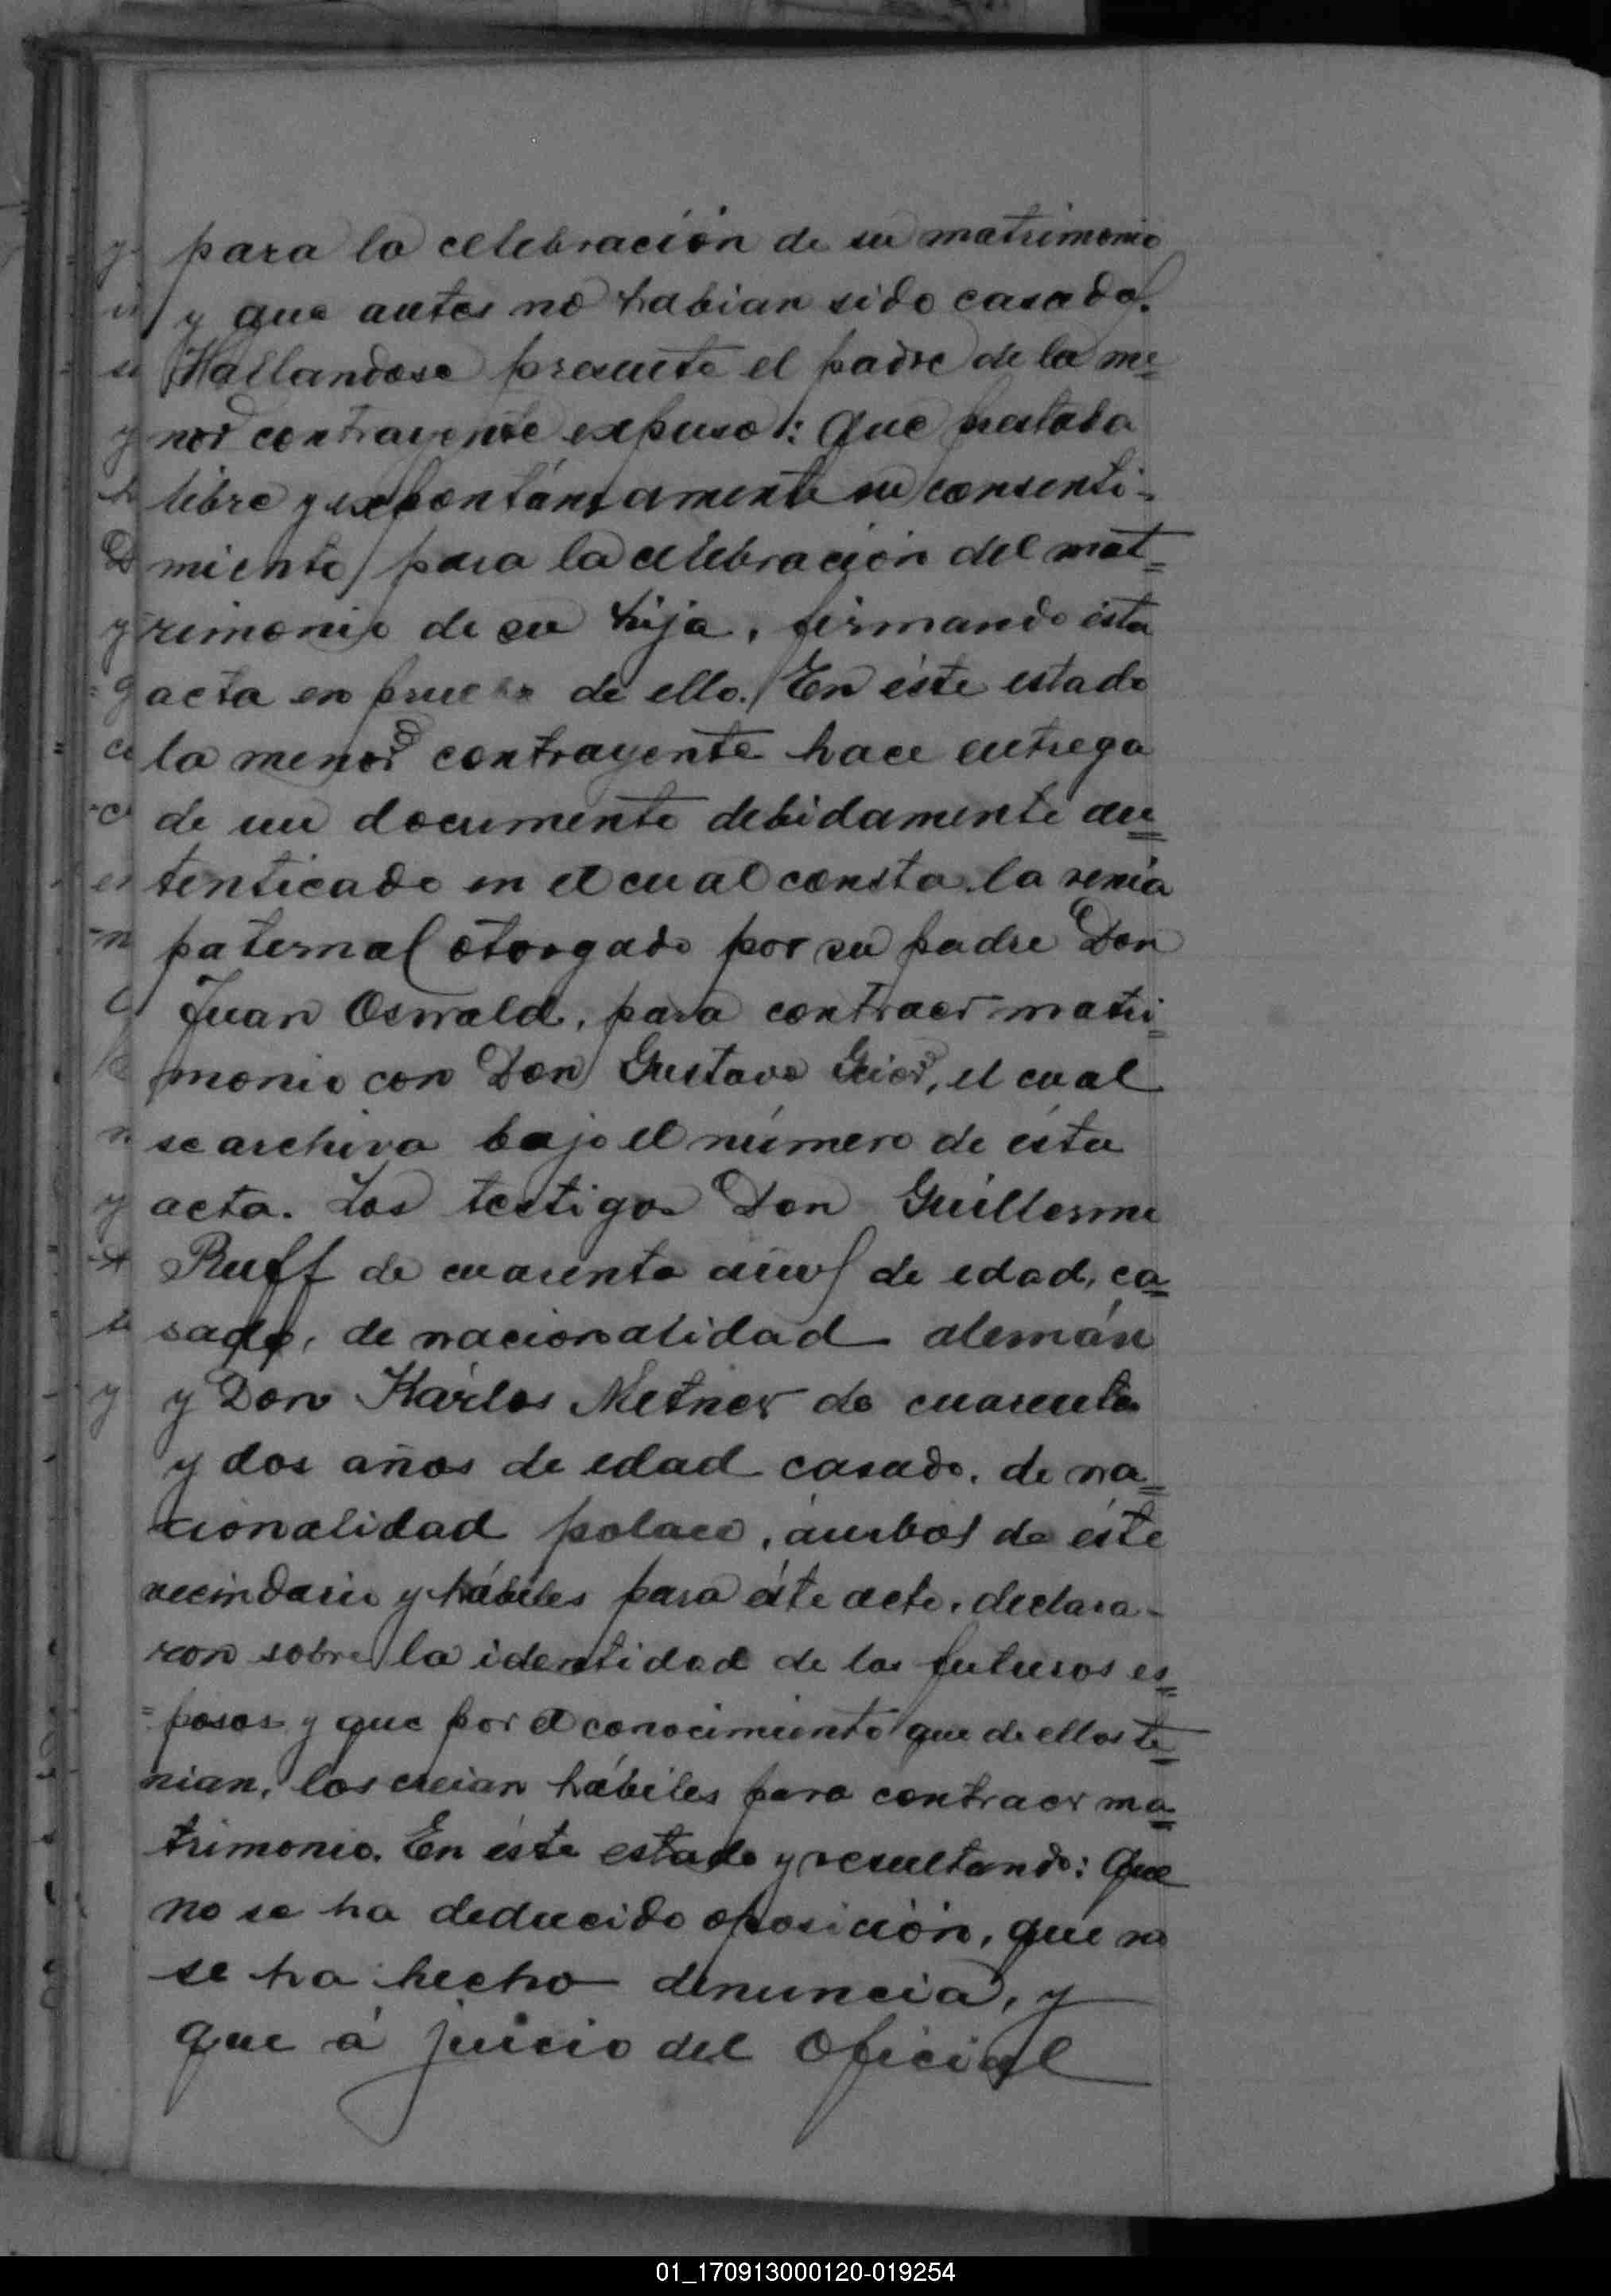 para la celebración de su matrimonio
y que antes no habian sido casados.
Hallandose presente el padre de la me=
nor contrayente expuso: Que prestaba
libre y expontáneamente su consenti-
miento para la celebración del mat=
rimonio de su hija, firmando ésta
acta en prueba de ello. En éste estado
la menor contrayente hace entrega
de un documento debidamente au=
tenticado en el cual consta la venia
paternal otorgado por su padre Don
Juan Oswald, para contraer matri=
monio con Don Gustavo el cual
se archiva bajo el número de ésta
acta. Los testigos Don Guillermo
Ruff de cuarenta años de edad, ca=
sado, de nacionalidad alemán
y Don Kárlos Metner de cuarenta
y dos años de edad casado, de na=
cionalidad polaco, ámbos de éste
vecindario y hábiles para éste acto, declara-
ron sobre la identidad de los futuros es=
=posos y que por el conocimiento que de ellos te=
nian, los creian hábiles para contraer ma=
trimonio. En éste estado y resultando: Que
no se ha deducido oposición, que no
se ha hecho denuncia, y
que á juicio del Oficial
01_170913000120-019254